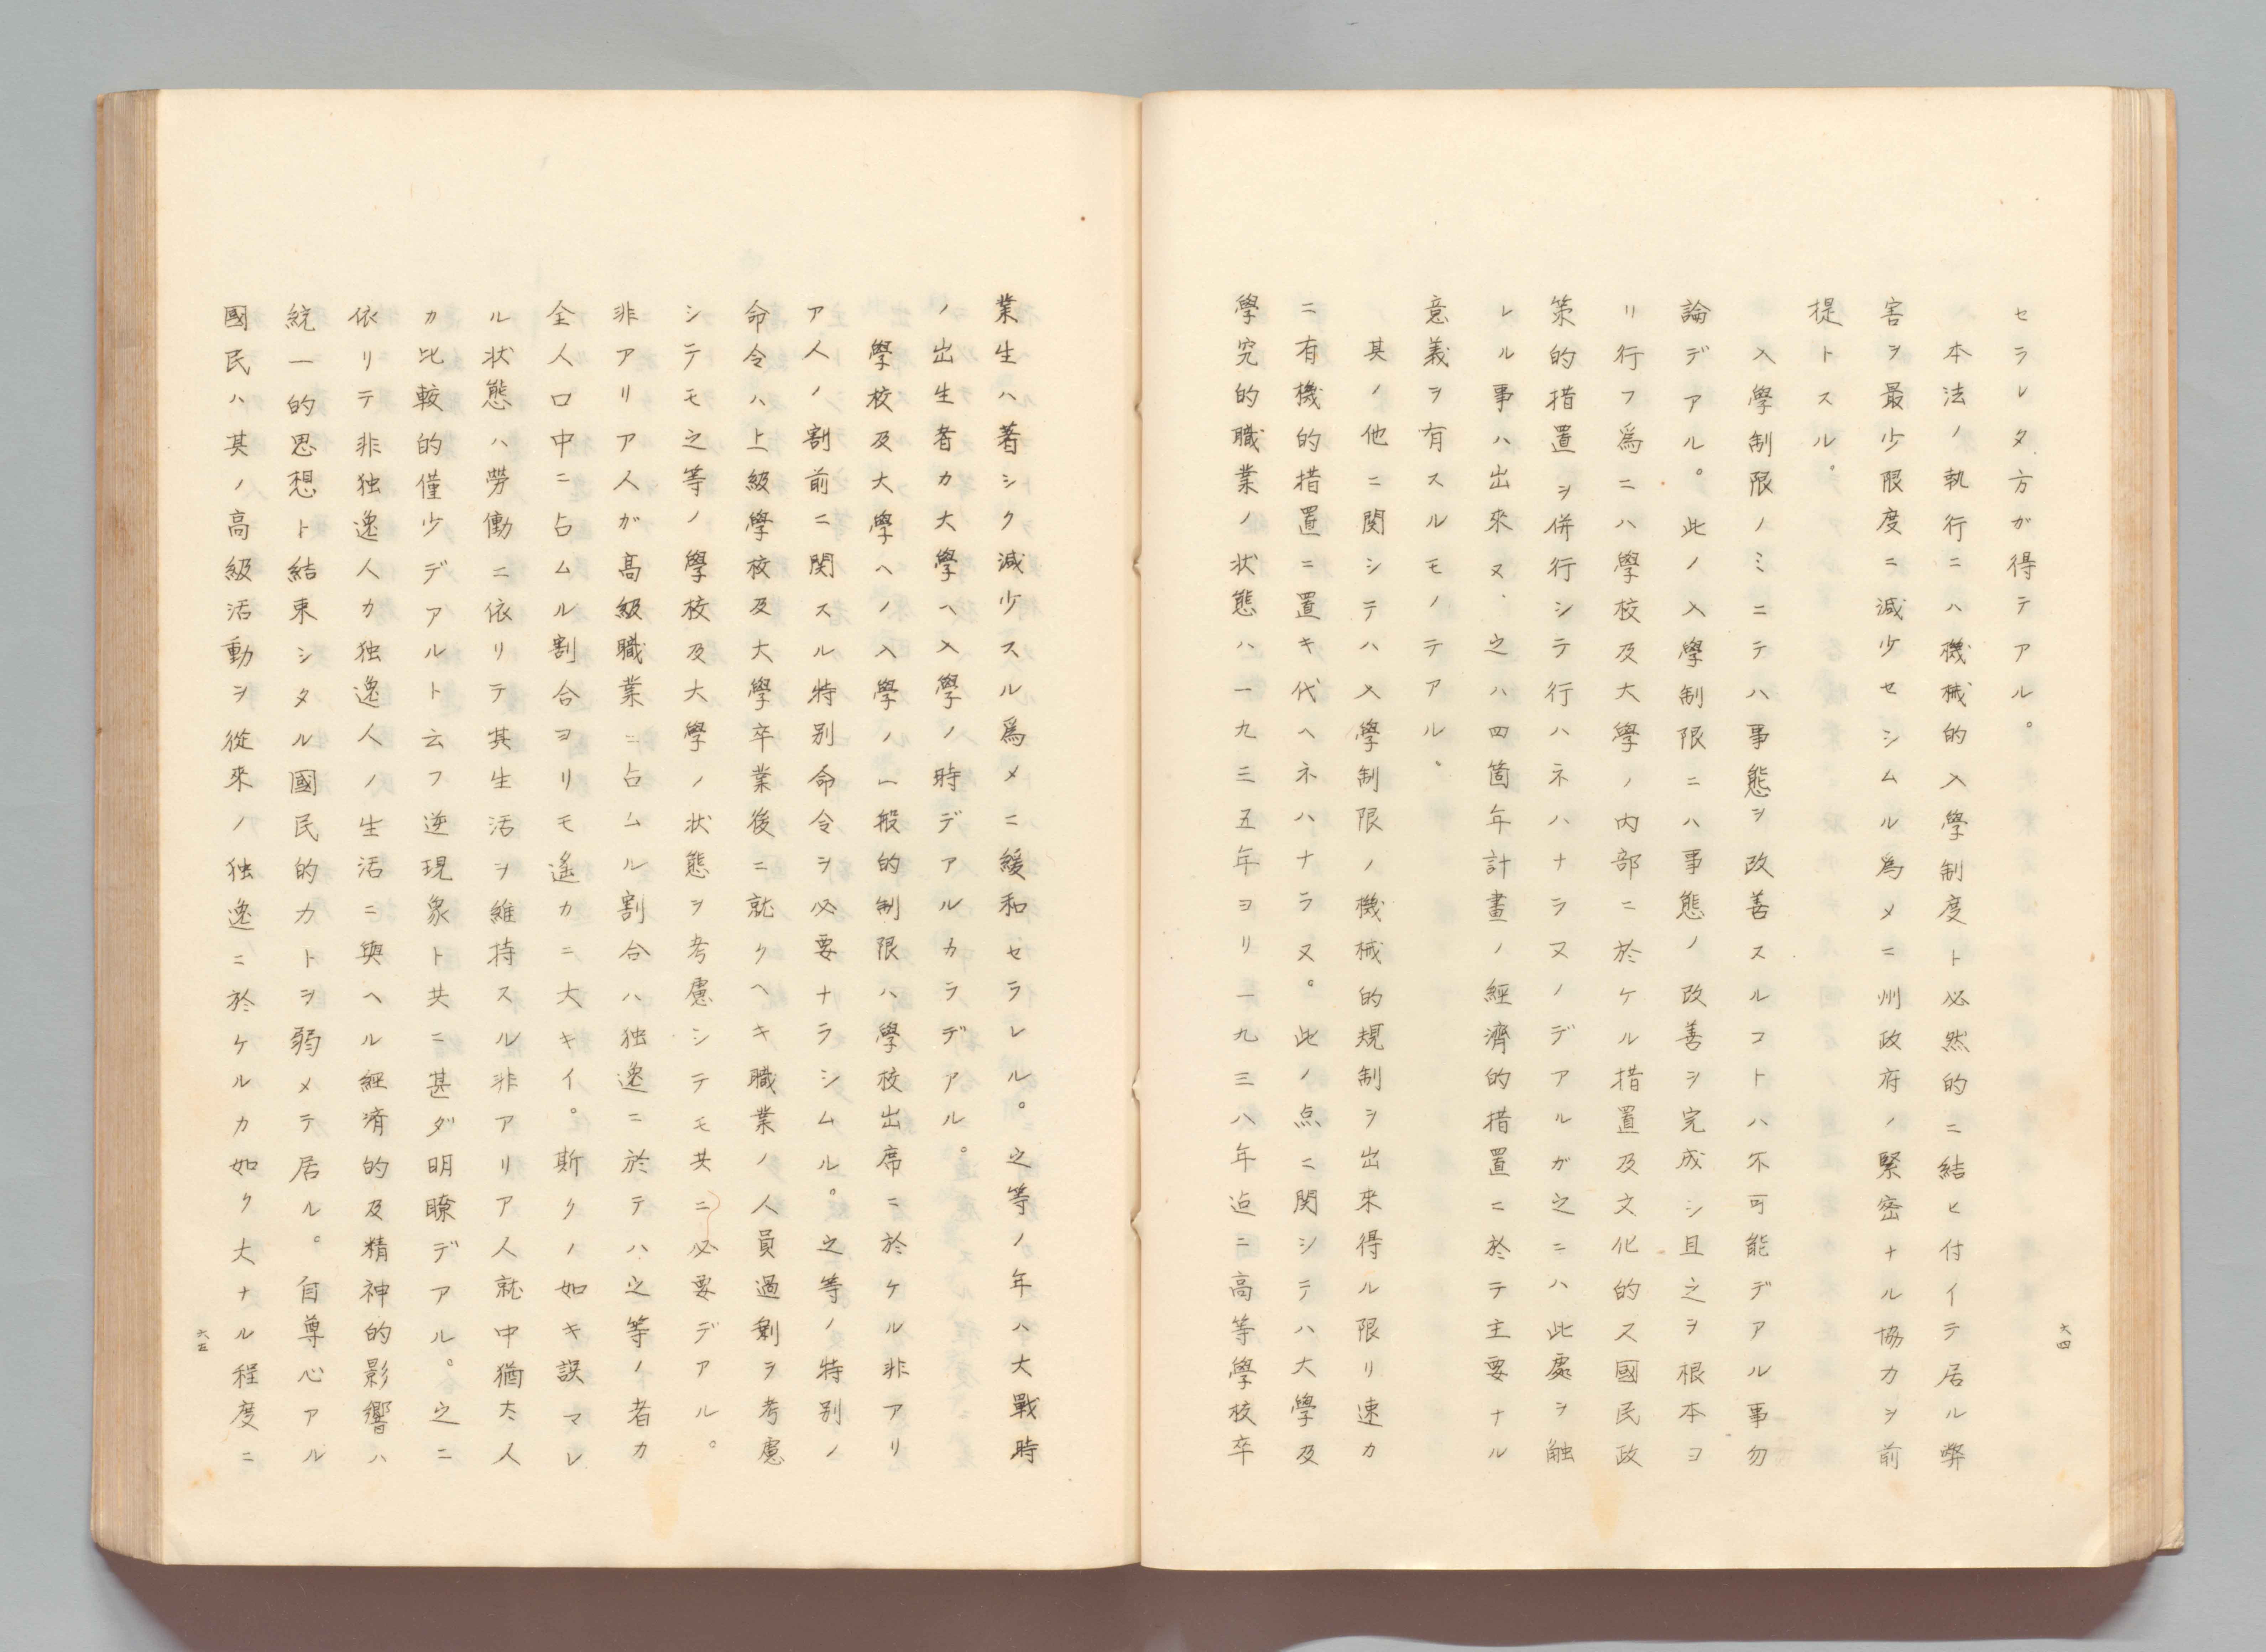 セラレタ方ガ得テアル。
本法ノ執行ニハ機械的入學制度ト必然的ニ結ヒ付イテ居ル弊
害ヲ最少限度ニ減少セシムル為メニ州政府ノ緊密ナル協力ヲ前
提トスル。
入學制限ノミニテハ事態ヲ改善スルコトハ不可能デアル事勿
論デアル。此ノ入學制限ニハ事態ノ改善ヲ完成シ且之ヲ根本ヨ
リ行フ爲ニハ學校及大學ノ内部ニ於ケル措置及文化的又國民政
策的措置ヲ併行シテ行ハネハナラヌノデアルガ之ニハ此處ヲ触
レル事ハ出來ヌ、之ハ四箇年計畫ノ經濟的措置ニ於テ主要ナル
意義ヲ有スルモノテアル。
其ノ他ニ関シテハ入學制限ノ機械的規制ヲ出來得ル限リ速カ
ニ有機的措置ニ置キ代ヘネハナラヌ。此ノ点ニ関シテハ大學及
學究的職業ノ状態ハ一九三五年ヨリ一九三八年迄ニ高等學校卒
六四
業生ハ著シク減少スル爲メニ緩和セラレル。之等ノ年ハ大戰時
ノ出生者カ大學ヘ入學ノ時デアルカラデアル。
學校及大學ヘノ入學ノ一般的制限ハ學校出席ニ於ケル非アリ
ア人ノ割前ニ関スル特別命令ヲ必要ナラシムル。之等ノ特別ノ
命令ハ上級學校及大學卒業後ニ就クヘキ職業ノ人員過剰ヲ考慮
シテモ之等ノ學校及大學ノ状態ヲ考慮シテモ共ニ必要デアル。
非アリア人ガ高級職業ニ占ムル割合ハ独逸ニ於テハ之等ノ者カ
全人口中ニ占ムル割合ヨリモ遙カニ大キイ。斯クノ如キ誤マレ
ル状態ハ勞働ニ依リテ其生活ヲ維持スル非アリア人就中猶太人
カ比較的僅少デアルト云フ逆現象ト共ニ甚ダ明瞭デアル。之ニ
依リテ非独逸人カ独逸人ノ生活ニ與ヘル經済的及精神的影響ハ
統一的思想ト結束シタル國民的力トヲ弱メテ居ル。自尊心アル
國民ハ其ノ高級活動ヲ從來ノ独逸ニ於ケルカ如ク大ナル程度ニ
六五